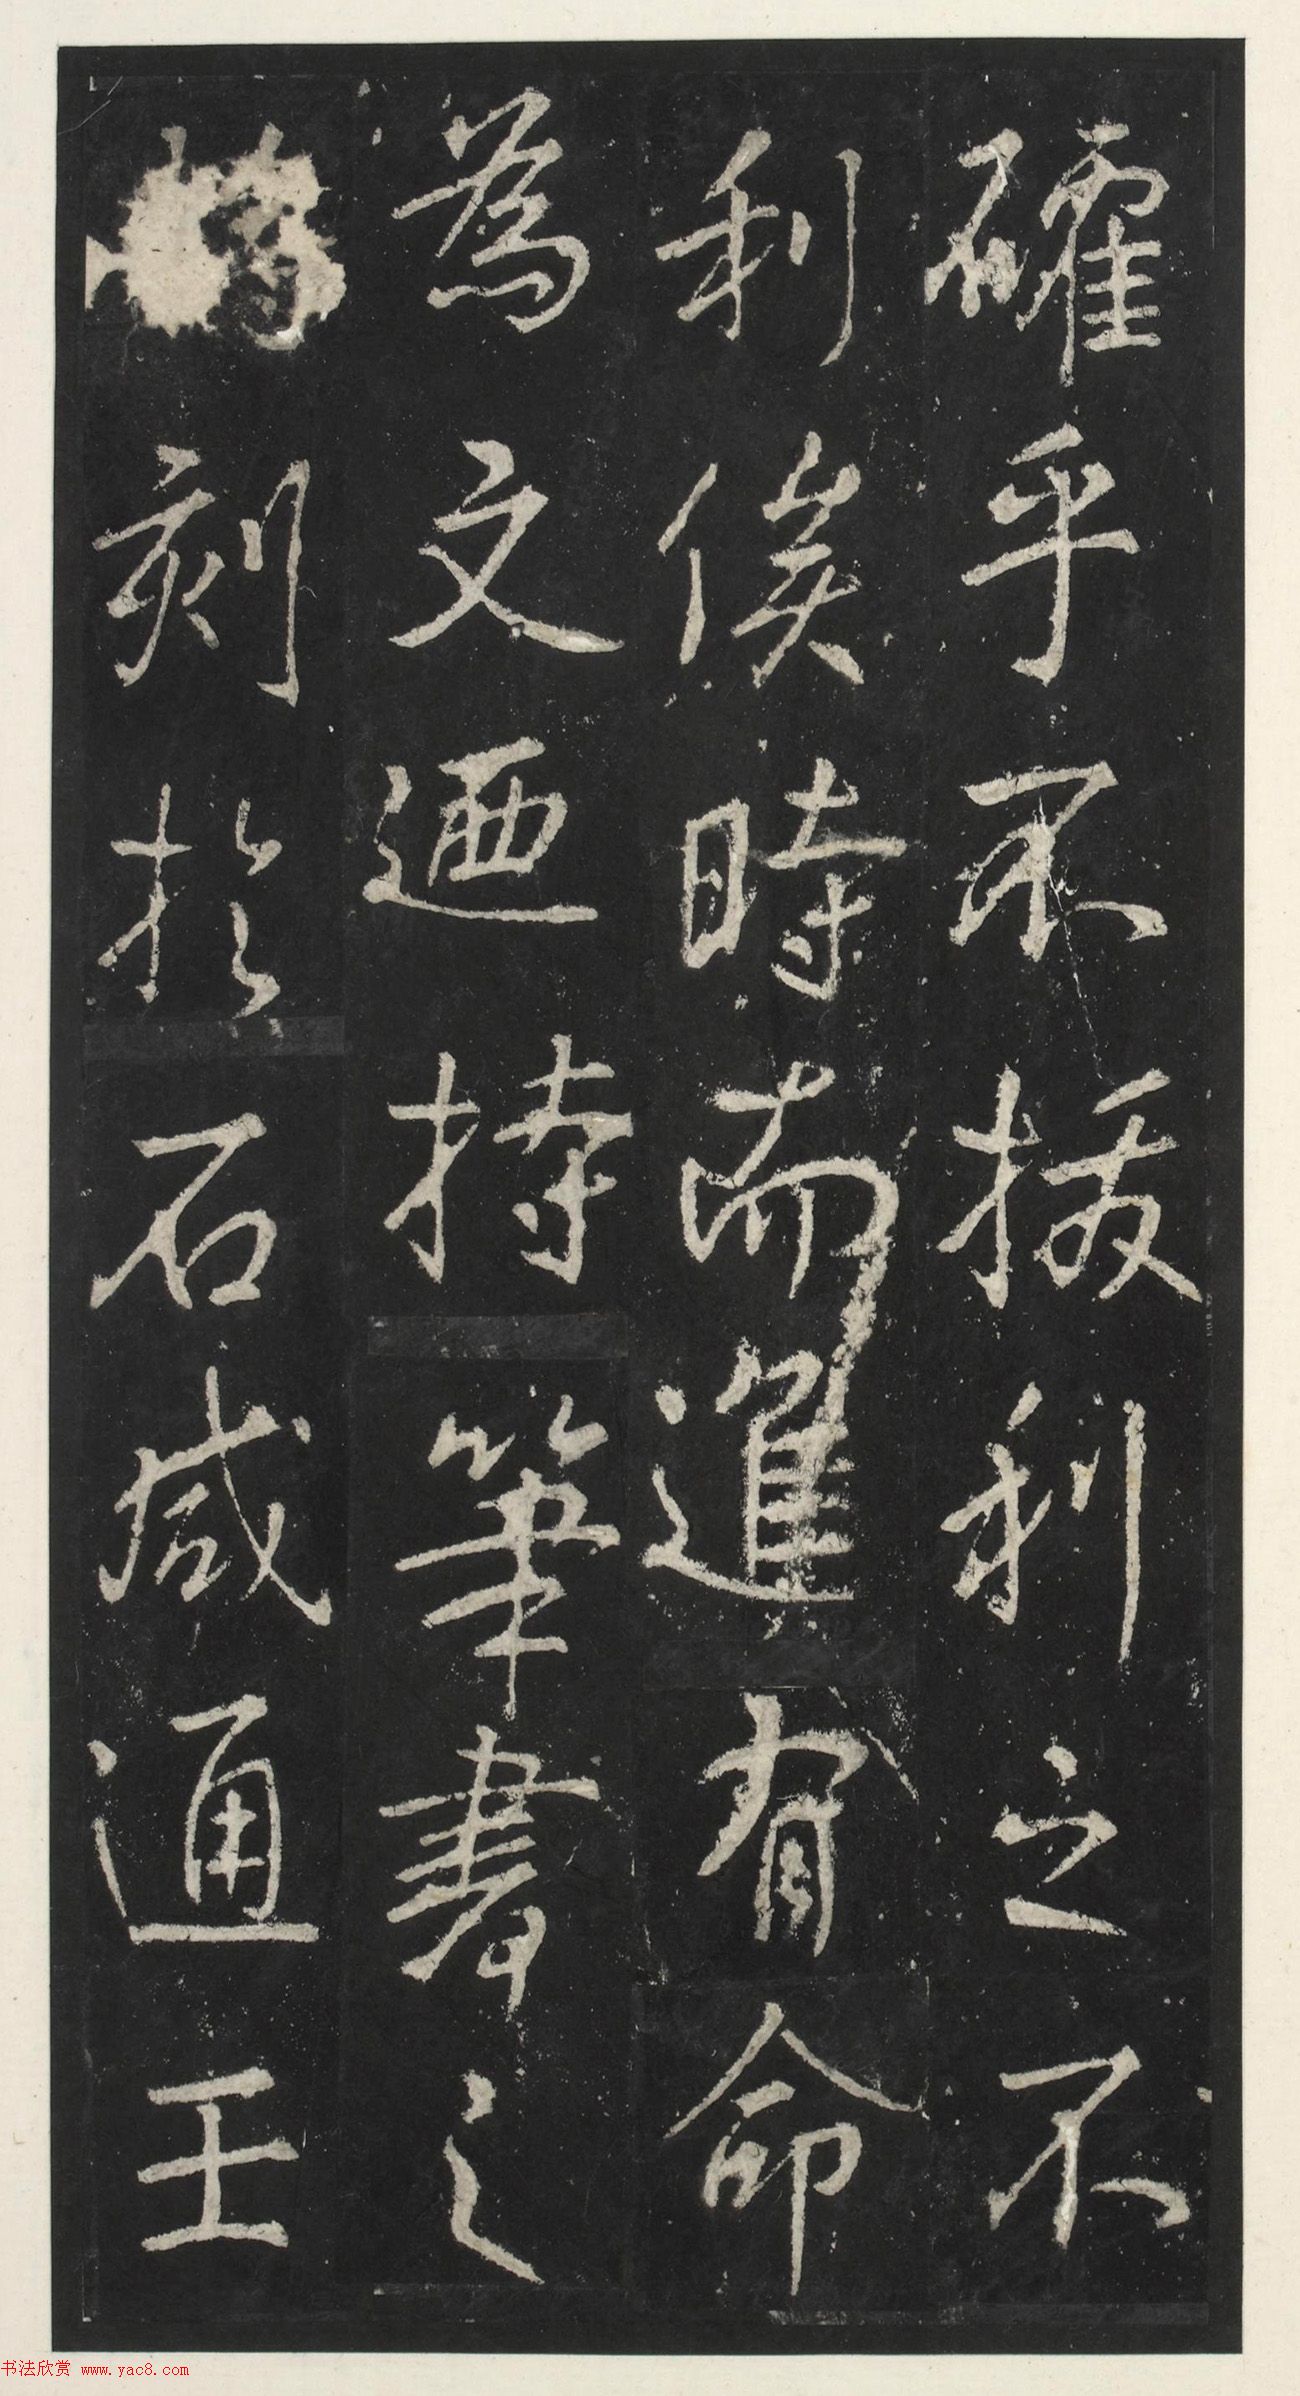 確乎不拔利之不
利俟時而進有命
為文迺持筆書之
刻於石咸通王
书法欣赏 www.yac8.com